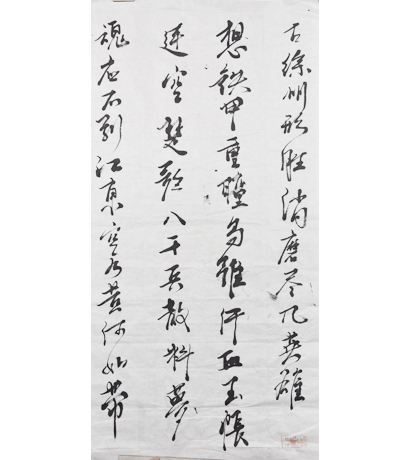 古徐州形胜消磨尽几英雄
想鉄甲重瞳烏騅汗血玉帳
連空楚歌八千兵散料夢
魂应不到江東空有黄河如帶